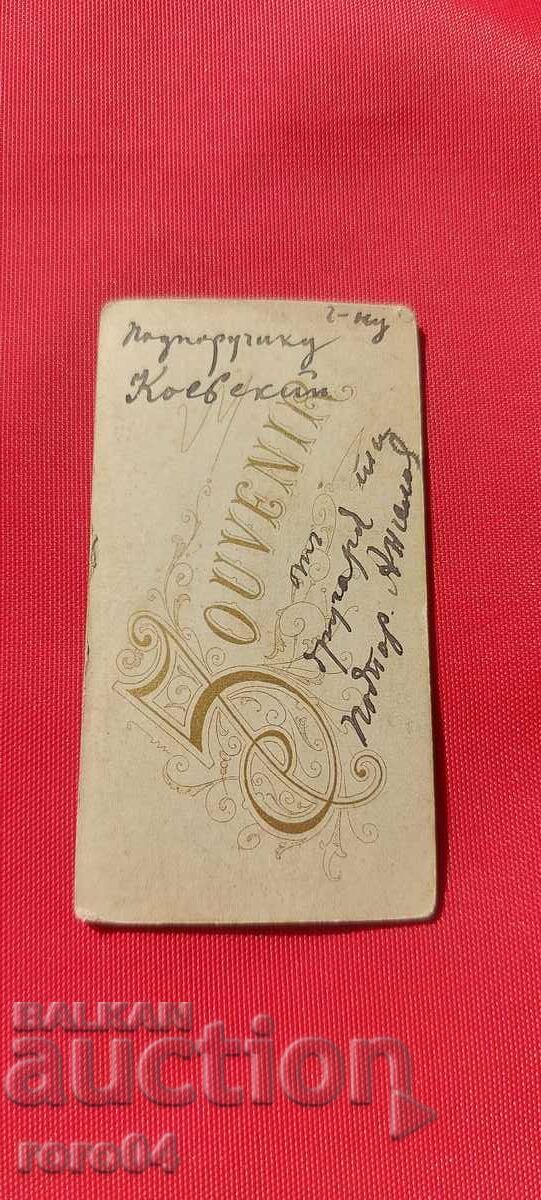 г-ну
Подпоручику
Коевский
SOUVENIR
отъ
другаря
Подпор.
BALKAN
auction
roro04